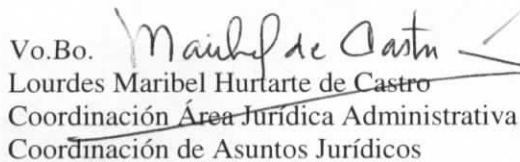 Vo.Bo. Maribel de Castro
Lourdes Maribel Hurtarte de Castro
Coordinación Área Jurídica Administrativa
Coordinación de Asuntos Jurídicos